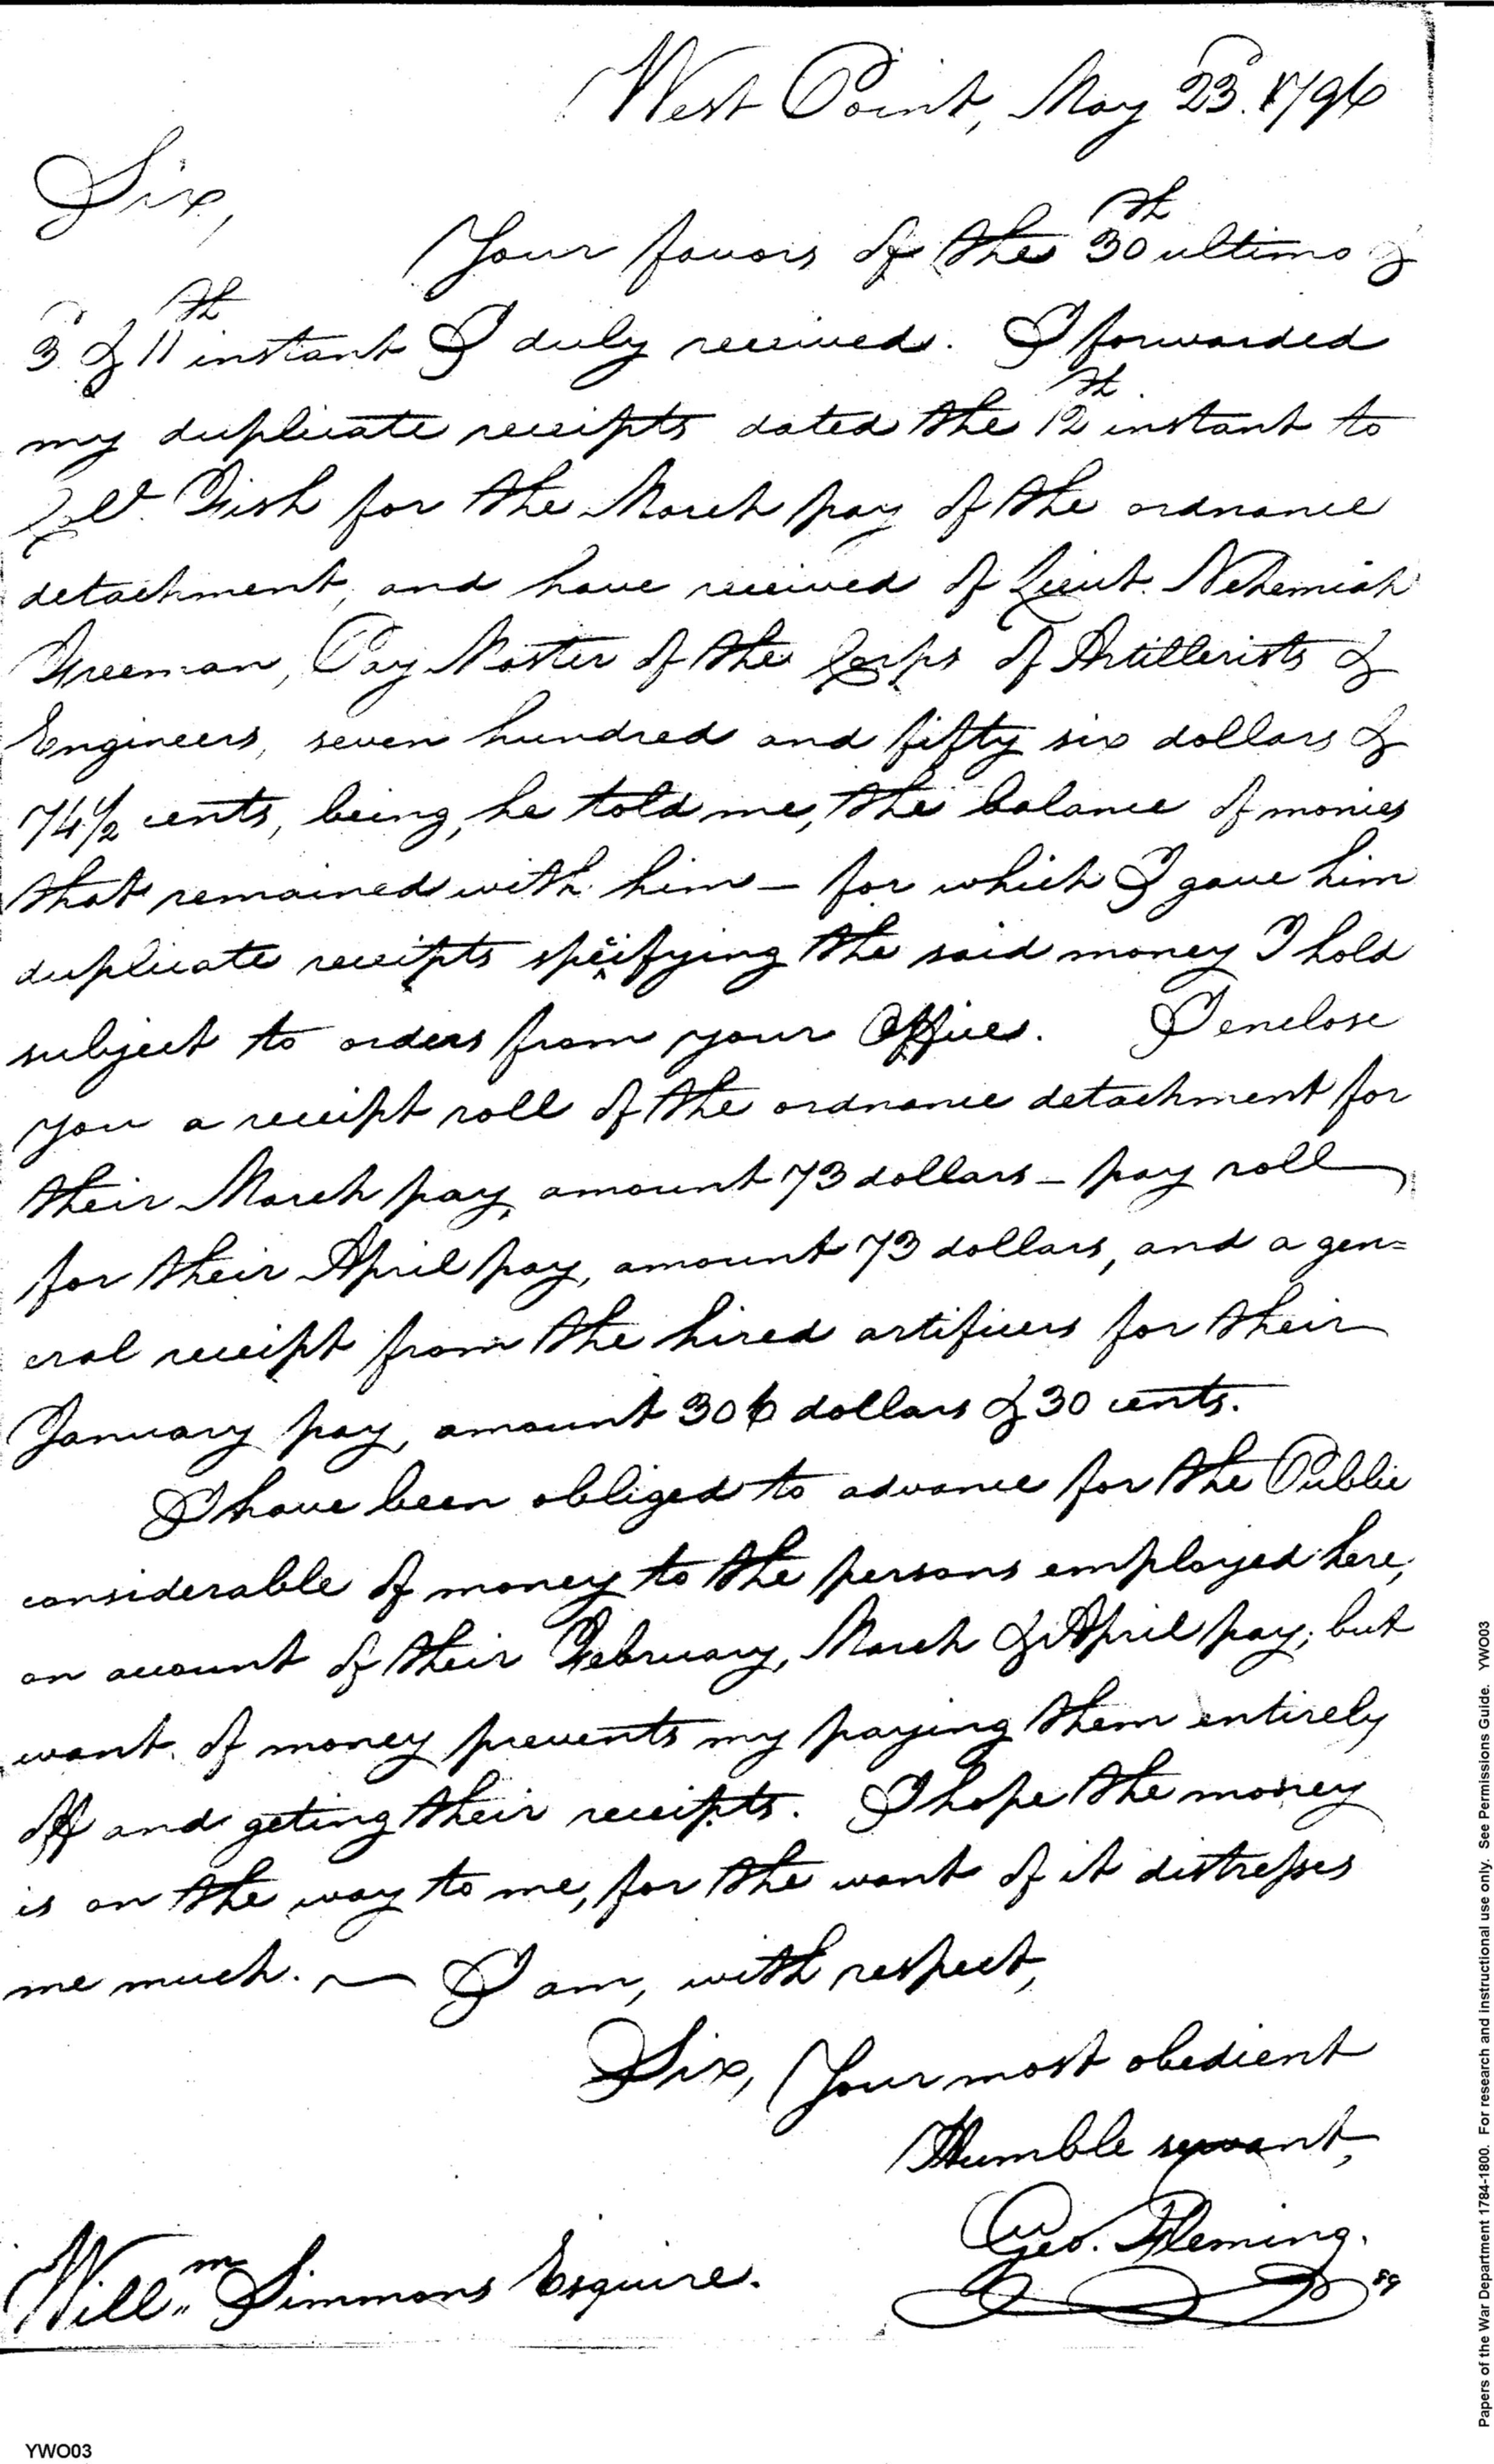 West Point, May 23d. 1796
Sir,
Your favors of the 30th ultimo &
3d. & 11th instant I duly received. I forwarded
my duplicate receipts dated the 12th instant to
Col. Fish for the March pay of the ordnance
detachment, and have received of Lieut. Nehemiah
Freeman, Pay Master of the Corps of Artillerists &
Engineers, seven hundred and fifty six dollars &
74 1/2 cents, being, he told me, the balance of monies
that remained with him — for which I gave him
duplicate receipts specifying the said money I hold
subject to orders from your Office. I enclose
you a receipt roll of the ordnance detachment for
their March pay, amount 73 dollars — pay roll
for their April pay, amount 73 dollars, and a gen=
eral receipt from the hired artificers for their
January pay, amount 306 dollars & 30 cents.
I have been obliged to advance for the Public
considerable of money to the persons employed here,
on account of their February, March & April pay; but
want of money prevents my paying them entirely
off and geting their receipts. I hope the money
is on the way to me, for the want of it distresses
me much. — I am, with respect,
Sir, Your most obedient
Humble servant,
Geo. Fleming.
Willm Simmons Esquire.
89
YWO03
Papers of the War Department 1784-1800. For research and instructional use only. See Permissions Guide. YWO03